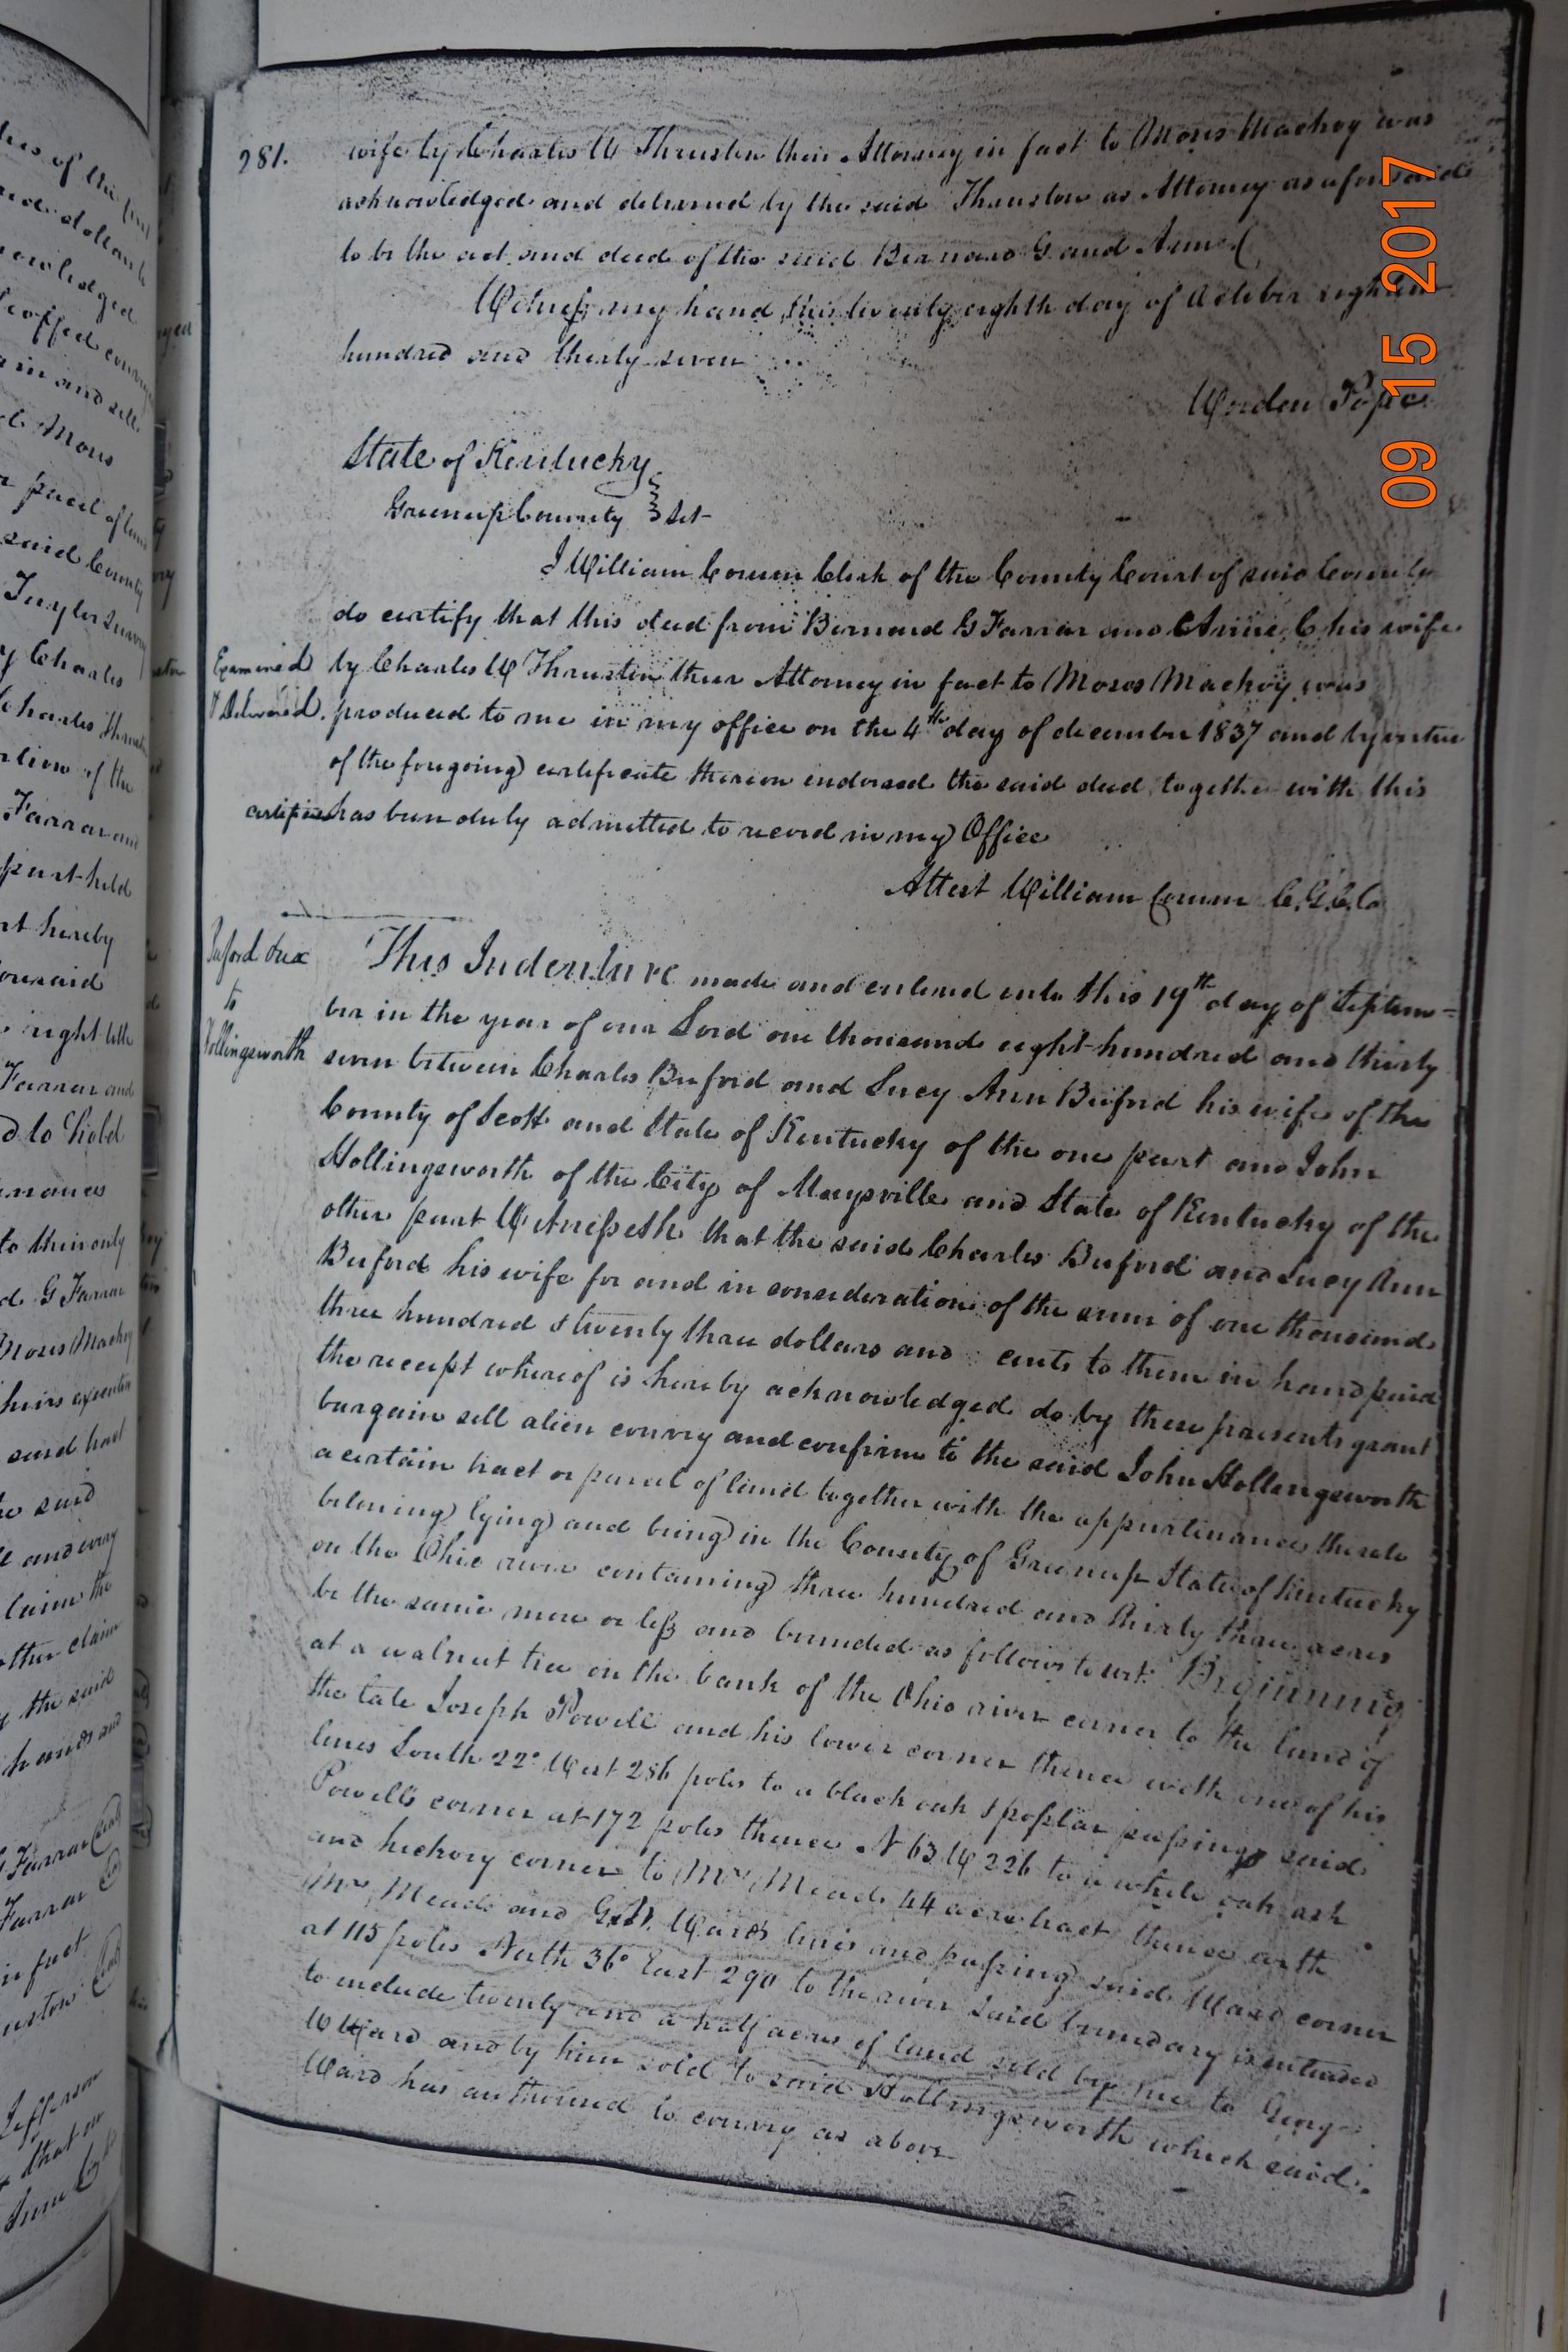 281.
wife by Charles W Thruston their Attorney in fact to Moses Mackoy was
acknowledged and delivered by the said Thruston as Attorney as aforesaid
to be the act and deed of the said Bernard G and Anne C
Witness my hand this twenty eighth day of October eighteen
hundred and thirty seven
Worden Pope
State of Kentucky
Greenup County Sct
I William Corum Clerk of the County Court of said County
do certify that this deed from Bernard G Farrar and Anne C his wife
Examined
& Delivered.
by Charles W Thruston their Attorney in fact to Moses Mackoy was
produced to me in my office on the 4th day of december 1837 and by virtue
of the foregoing certificate thereon endorsed the said deed together with this
certificate has been duly admitted to record in my Office
Attest William Corum C.G.C.C.
Buford & ux
to
Hollingsworth
This Indenture made and entered into this 19th day of Septem=
ber in the year of our Lord one thousand eight hundred and thirty
seven between Charles Buford and Lucy Ann Buford his wife of the
County of Scott and State of Kentucky of the one part and John
Hollingsworth of the City of Maysville and State of Kentucky of the
other part Witnesseth that the said Charles Buford and Lucy Ann
Buford his wife for and in consideration of the sum of one thousand
three hundred & twenty three dollars and cents to them in hand paid
the receipt whereof is hereby acknowledged do by these presents grant
bargain sell alien convey and confirm to the said John Hollingsworth
a certain tract or parcel of land together with the appurtinances thereto
beloning lying and being in the County of Greenup State of Kentucky
on the Ohio river containing three hundred and thirty three acres
be the same more or less and bounded as follows to wit: Beginning
at a walnut tree on the bank of the Ohio river corner to the land of
the late Joseph Powell and his lower corner thence with one of his
lines South 22° West 286 poles to a black oak & poplar passing said
Powells corner at 172 poles thence N 63 W 226 to a white oak ash
and hickory corner to Mrs Meads 44 acre tract thence with
Mrs Meads and G.W. Wards lines and passing said Ward corner
at 115 poles North 36° East 290 to the river said boundary is intended
to include twenty and a half acres of land sold by me to Georg
W Ward and by him sold to said Hollingsworth which said
Ward has authorised to convey as above
09 15 2017